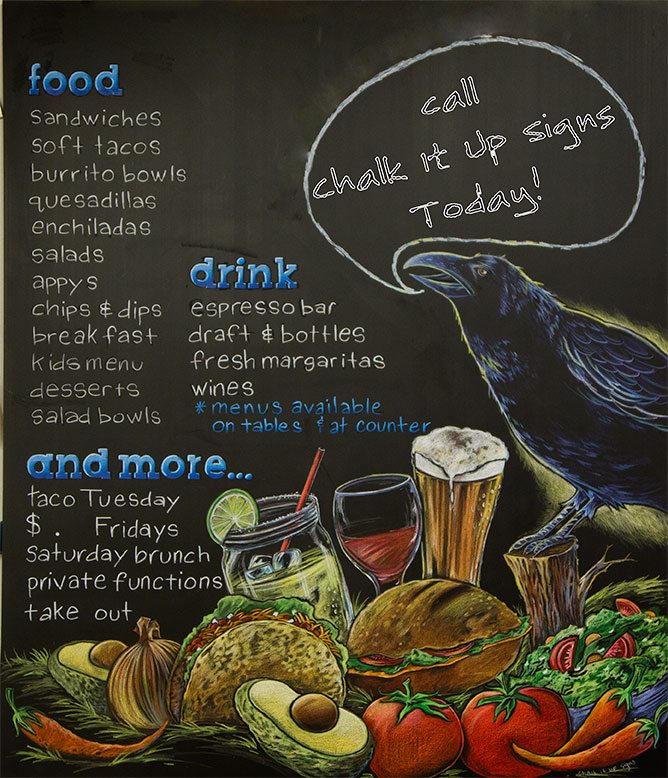 food
sandwiches
soft tacos
burrito bowls
quesadillas
enchiladas
salads
appys
chips & dips
breakfast
kids menu
desserts
salad bowls
and more...
taco Tuesday
$ . Fridays
Saturday brunch
private functions
take out
drink
espresso bar
draft & bottles
fresh margaritas
wines
*menus available
on tables & at counter
call
chalk It Up Signs
Today!